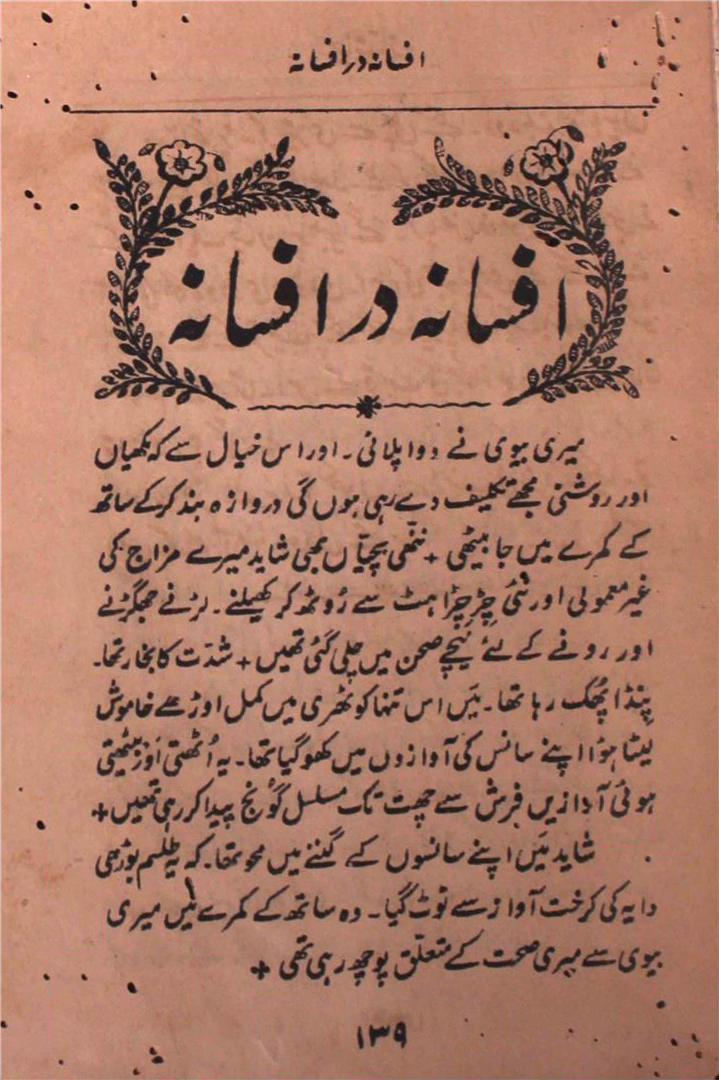 افسانہ در افسانہ
افسانہ در افسانہ
میری بیوی نے دوا پلائی۔ اور اس خیال سے کہ مکھیاں
اور روشنی مجھے تکلیف دے رہی ہوں گی دروازہ بند کرکے ساتھ
کے کمرے میں جا بیٹھی + ننھی بچیاں بھی شاید میرے مزاج کی
غیر معمولی اور نئی چِڑچِڑاہٹ سے رُوٹھ کر کھیلنے۔ لڑنے جھگڑنے
اور رونے کے لئے نیچے صحن میں چلی گئی تھیں + شدّت کا بخار تھا۔
پنڈا پُھک رہا تھا۔ مَیں اس تنہا کوٹھری میں کمل اوڑھے خاموش
لیٹا ہؤا اپنے سانس کی آوازوں میں کھو گیا تھا۔ یہ اُٹھتی اَور بیٹھتی
ہوئی آوازیں فرش سے چھت تک مسلسل گُونج پیدا کر رہی تھیں +
شاید مَیں اپنے سانسوں کے گننے میں محو تھا۔ کہ یہ طلسم بوڑھی
دایہ کی کرخت آواز سے ٹوٹ گیا۔ وہ ساتھ کے کمرے میں میری
بیوی سے میری صحت کے متعلّق پوچھ رہی تھی +
۱۳۹